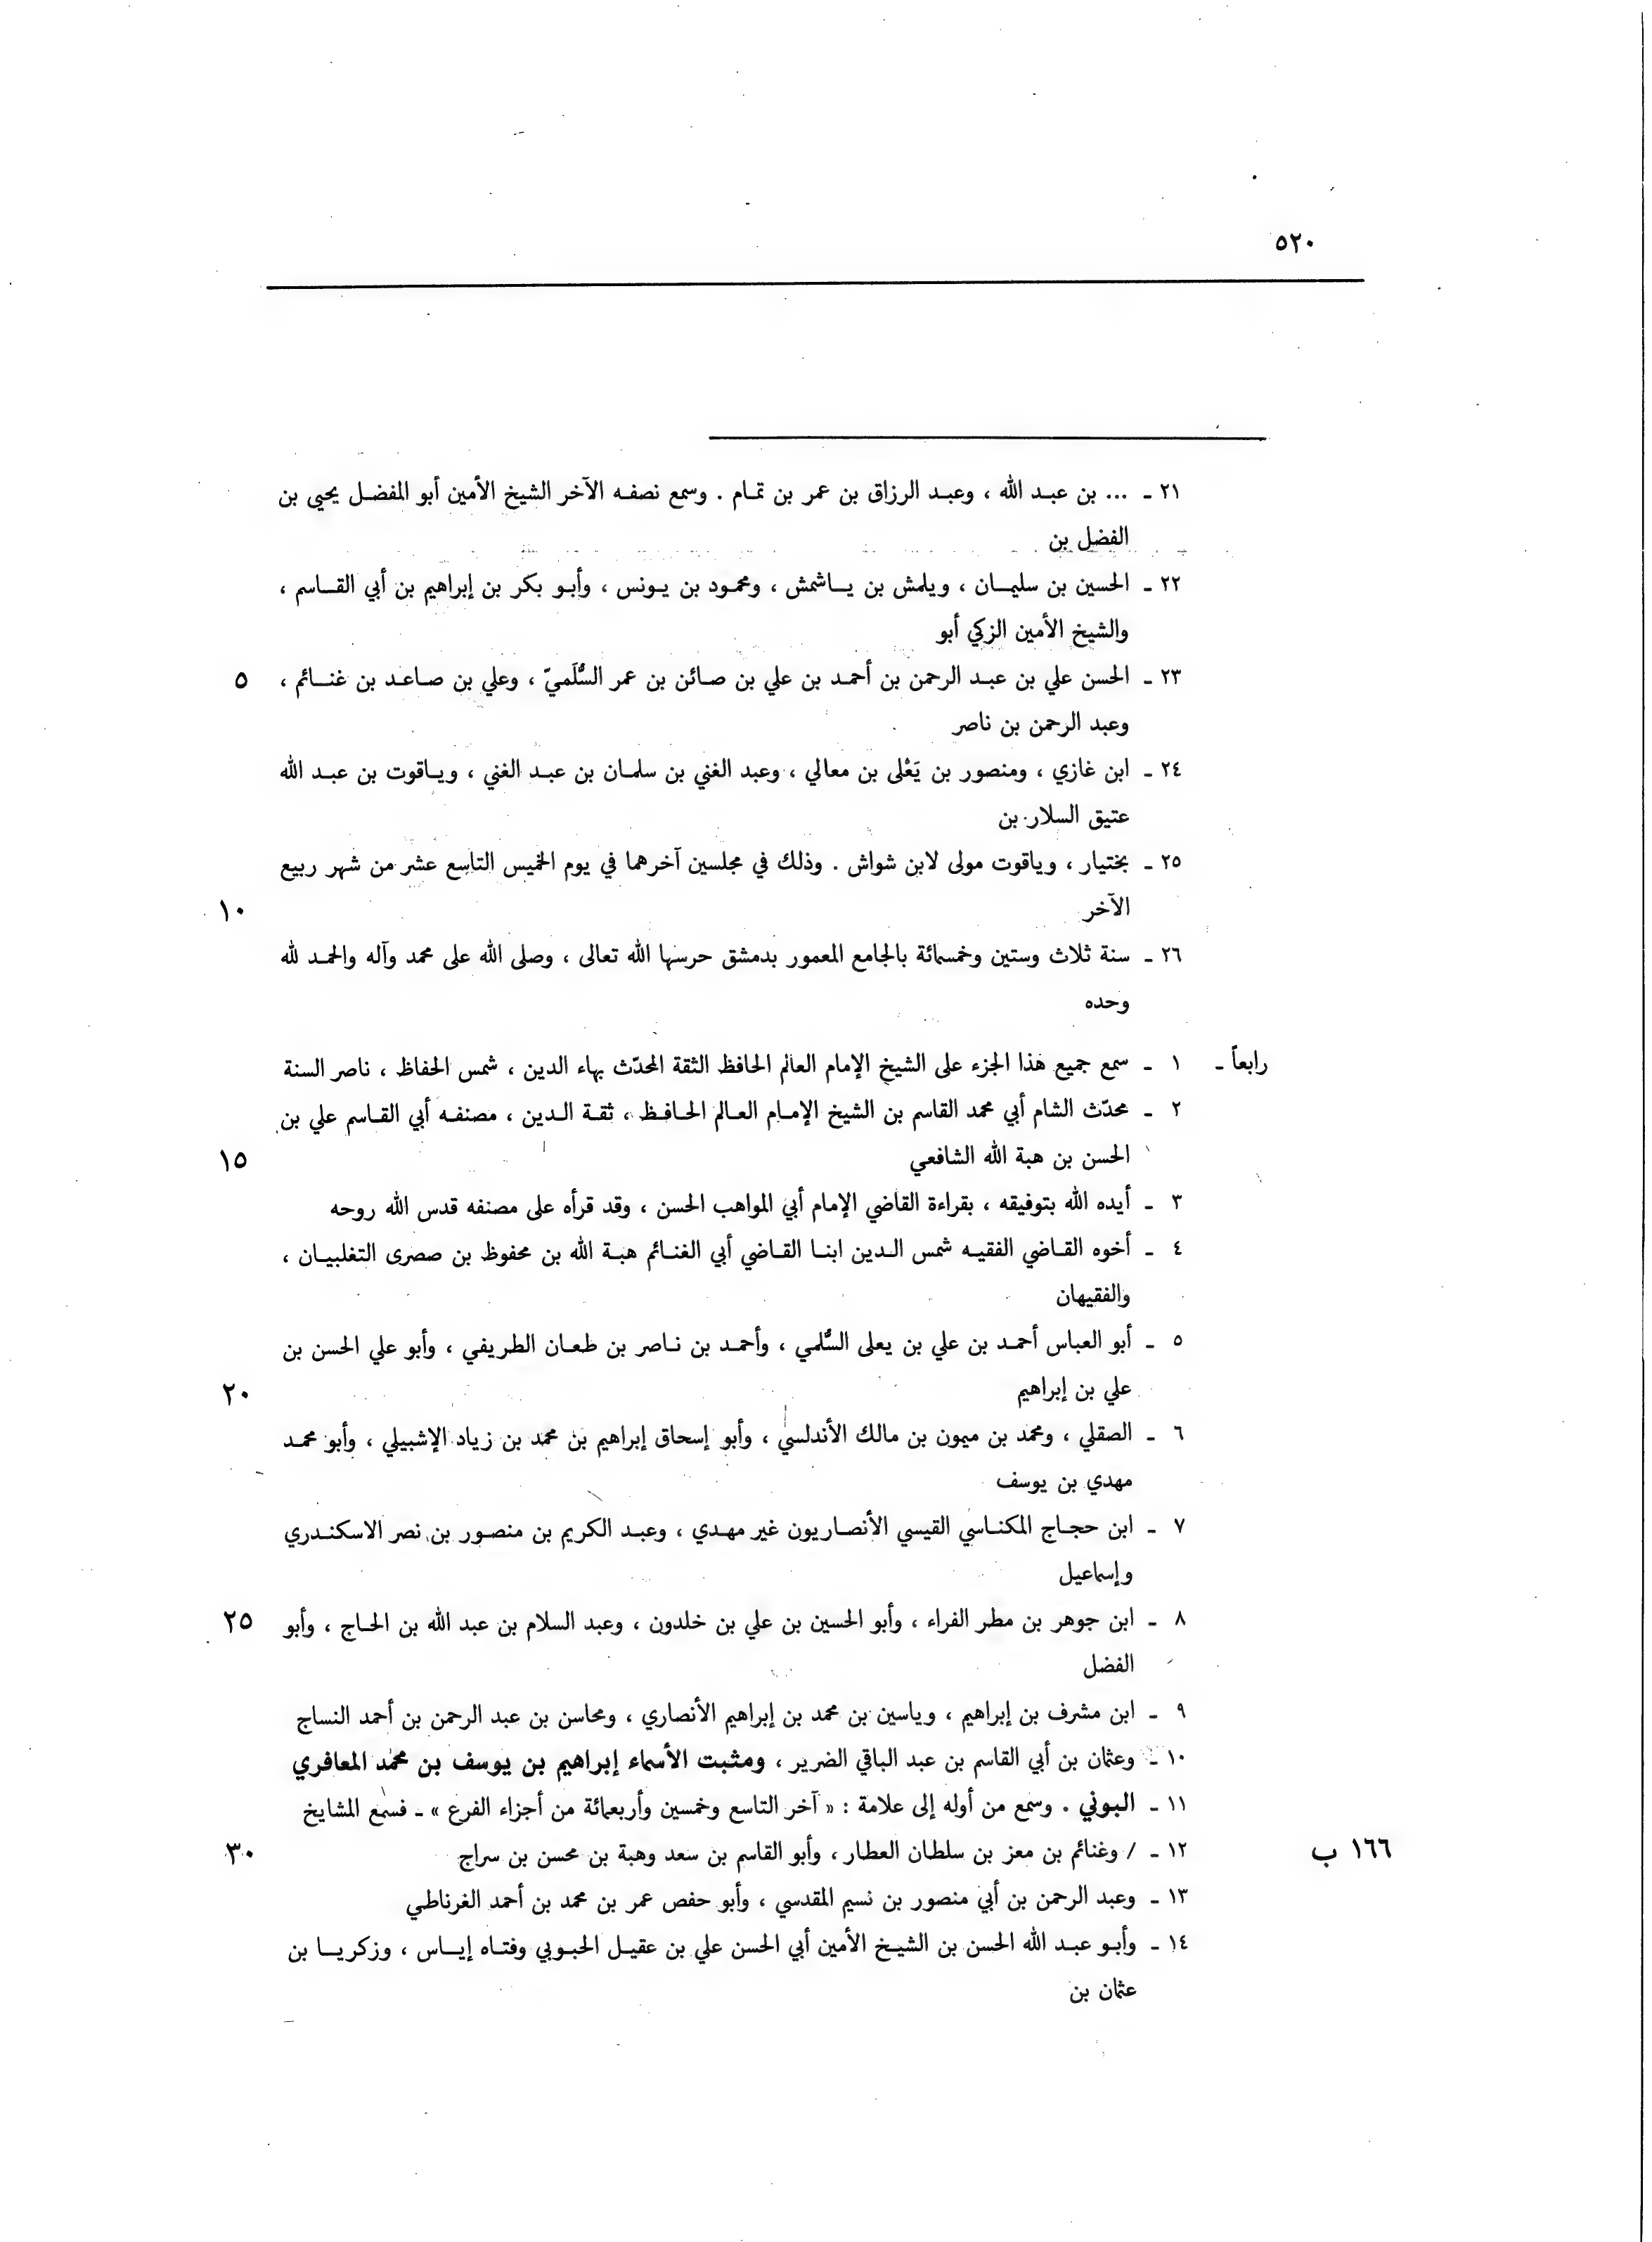 ٥٢٠
٢١ ـ ... بن عبد الله ، وعبد الرزاق بن عمر بن تمام . وسمع نصفه الآخر الشيخ الأمين أبو المفضل يحيى بن
الفضل بن
٢٢ ـ الحسين بن سليمان ، ويلمش بن ياشمش ، ومحمود بن يونس ، وأبو بكر بن إبراهيم بن أبي القاسم ،
والشيخ الأمين الزكي أبو
٢٣ ـ الحسن علي بن عبد الرحمن بن أحمد بن علي بن صائن بن عمر السُّلَميّ ، وعلي بن صاعد بن غنائم ، ٥
وعبد الرحمن بن ناصر
٢٤ ـ ابن غازي ، ومنصور بن يَعْلى بن معالي ، وعبد الغني بن سلمان بن عبد الغني ، وياقوت بن عبد الله
عتيق السلار بن
٢٥ ـ بختيار ، وياقوت مولى لابن شواش . وذلك في مجلسين آخرهما في يوم الخميس التاسع عشر من شهر ربيع
الآخر ١٠
٢٦ ـ سنة ثلاث وستين وخمسمائة بالجامع المعمور بدمشق حرسها الله تعالى ، وصلى الله على محمد وآله والحمد لله
وحده
رابعاً ـ ١ ـ سمع جميع هذا الجزء على الشيخ الإمام العالم الحافظ الثقة المحدّث بهاء الدين ، شمس الحفاظ ، ناصر السنة
٢ ـ محدّث الشام أبي محمد القاسم بن الشيخ الإمام العالم الحافظ ، ثقة الدين ، مصنفه أبي القاسم علي بن
الحسن بن هبة الله الشافعي ١٥
٣ ـ أيده الله بتوفيقه ، بقراءة القاضي الإمام أبي المواهب الحسن ، وقد قرأه على مصنفه قدس الله روحه
٤ ـ أخوه القاضي الفقيه شمس الدين ابنا القاضي أبي الغنائم هبة الله بن محفوظ بن صصرى التغلبيان ،
والفقيهان
٥ ـ أبو العباس أحمد بن علي بن يعلى السُّلمي ، وأحمد بن ناصر بن طعان الطريفي ، وأبو علي الحسن بن
علي بن إبراهيم ٢٠
٦ ـ الصقلي ، ومحمد بن ميمون بن مالك الأندلسي ، وأبو إسحاق إبراهيم بن محمد بن زياد الإشبيلي ، وأبو محمد
مهدي بن يوسف
٧ ـ ابن حجاج المكناسي القيسي الأنصاريون غير مهدي ، وعبد الكريم بن منصور بن نصر الاسكندري
وإسماعيل
٨ ـ ابن جوهر بن مطر الفراء ، وأبو الحسين بن علي بن خلدون ، وعبد السلام بن عبد الله بن الحاج ، وأبو ٢٥
الفضل
٩ ـ ابن مشرف بن إبراهيم ، وياسين بن محمد بن إبراهيم الأنصاري ، ومحاسن بن عبد الرحمن بن أحمد النساج
١٠ ـ وعثمان بن أبي القاسم بن عبد الباقي الضرير ، ومثبت الأسماء إبراهيم بن يوسف بن محمد المعافري
١١ ـ البوني . وسمع من أوله إلى علامة : « آخر التاسع وخمسين وأربعمائة من أجزاء الفرع » ـ فسمع المشايخ
١٦٦ ب ١٢ ـ / وغنائم بن معز بن سلطان العطار ، وأبو القاسم بن سعد وهبة بن محسن بن سراج ٣٠
١٣ ـ وعبد الرحمن بن أبي منصور بن نسيم المقدسي ، وأبو حفص عمر بن محمد بن أحمد الغرناطي
١٤ ـ وأبو عبد الله الحسن بن الشيخ الأمين أبي الحسن علي بن عقيل الحبوبي وفتاه إياس ، وزكريا بن
عثمان بن